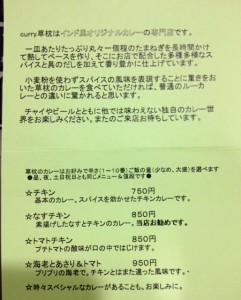 curry草枕はインド風オリジナルカレーの専門店です。
一皿あたりたっぷり丸々一個程のたまねぎを長時間かけ
て熱してベースを作り、そこにお店で配合した多種多様なス
パイスと具のだしを加えて香り豊かに仕上げています。
小麦粉を使わずスパイスの風味を表現することに重きをおい
た草枕のカレーを食べていただければ、普通のルーカ
レーとの違いに驚かれると思います。
チャイやビールとともに他では味わえない独自のカレー世
界をお楽しみください。またのご来店お待ちしています。
草枕のカレーはお好みで辛さ(1～10番)ご飯の量(少なめ、大盛)を選べます
●昼、夜、土日祝日とも同じメニュー&値段です●
☆チキン 750円
基本のカレー、スパイスを効かせたチキンカレーです。
☆なすチキン 850円
素揚げしたなすとチキンのカレー。当店お勧めです。
☆トマトチキン 850円
プチトマトの酸味が口の中ではじけます。
☆海老とあさり&トマト 950円
プリプリの海老で。チキンとはまた違った風味です。
☆時々スペシャルなカレーがあることも。お楽しみに。